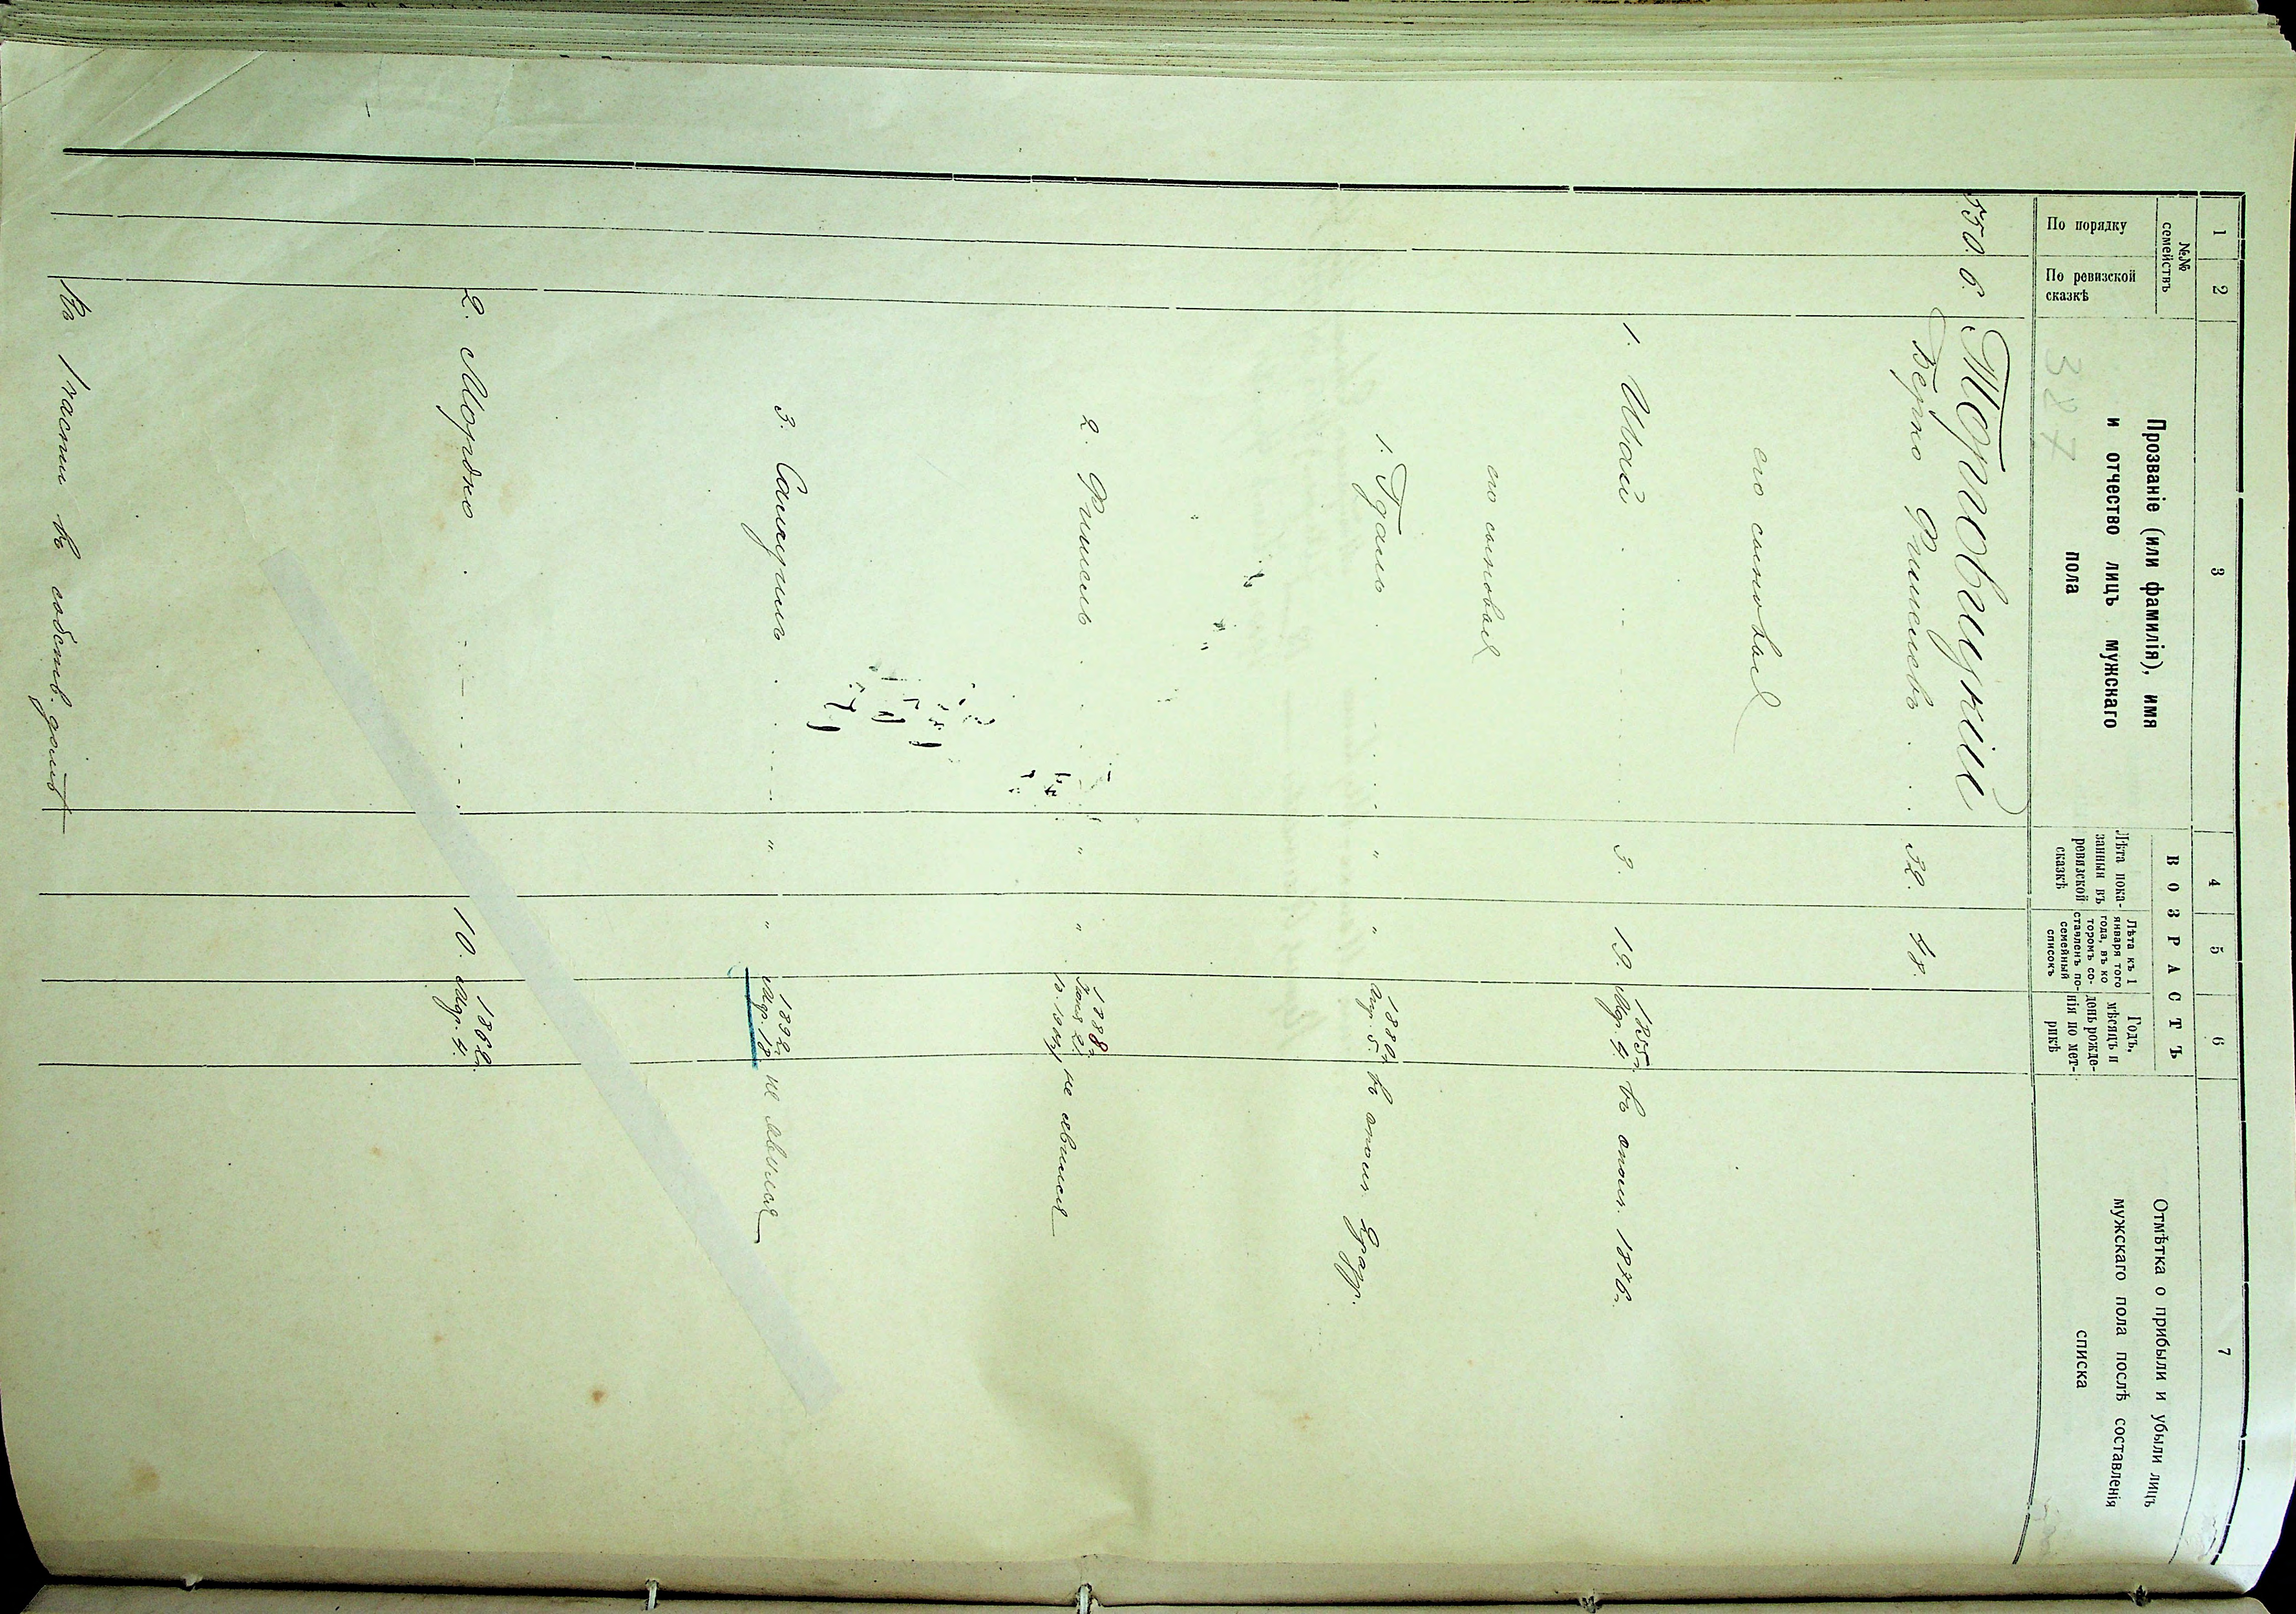 1 2 3 4 5 6 7
№№ семействъ
По порядку
По ревизской сказкѣ
Прозваніе (или фамилія), имя
и отчество лицъ мужскаго
пола
ВОЗРАСТЪ
Лѣта пока-
занныя въ
ревизской
сказкѣ
Лѣта къ 1
января того
года, въ ко
торомъ со-
ставленъ по-
семейный
списокъ
Годъ,
мѣсяцъ и
день рожде-
нія по мет-
рикѣ
Отмѣтка о прибыли и убыли лицъ
мужскаго пола послѣ составленія
списка
387
550. 6. Торговицкій
Берко Фишелевъ . . 32. 48.
его сыновья
1. Шай . . . . 3. 19. 1855г. Апр. 4. въ опол. 1876г.
его сыновья
1. Гдаль . . . . " " 1880г. Апр. 5. въ опол.
2. Фишель . . . " " 1888г. не явился
3. Санхуил . . . . " " 1892г. Апр. 18. не явился
2. Мордко . . . . 10. 1862г. Апр. 4.
Въ 1 части въ собств. домѣ